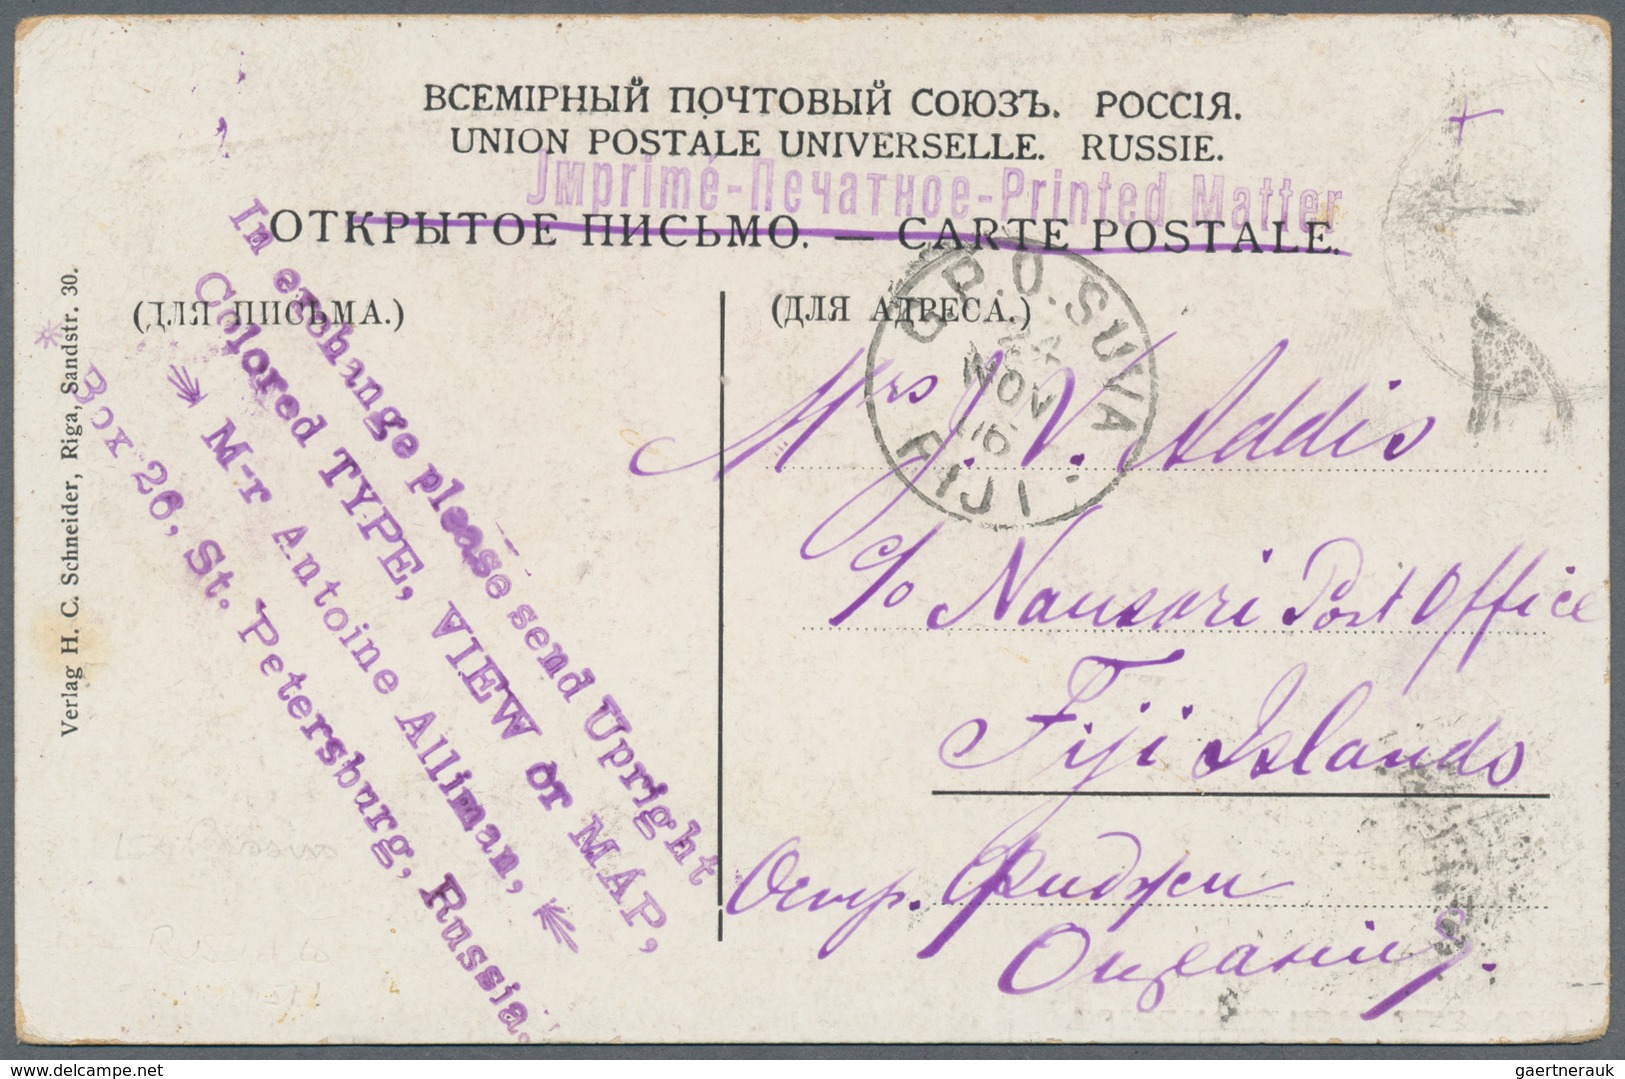 ВСЕМІРНЫЙ ПОЧТОВЫЙ СОЮЗЪ. РОССІЯ.
UNION POSTALE UNIVERSELLE. RUSSIE.
Jmprimé-Печатное-Printed Matter
ОТКРЫТОЕ ПИСЬМО. — CARTE POSTALE.
(ДЛЯ ПИСЬМА.)
(ДЛЯ АДРЕСА.)
Verlag H. C. Schneider, Riga, Sandstr. 30.
In exchange please send Upright
Colored TYPE, VIEW or MAP,
M-r Antoine Alliman,
Box 26, St. Petersburg, Russia.
G.P.O. SUVA
NOV
FIJI
Mrs J. V. Addis
c/o Nausori Post Office
Fiji Islands
Остр. Фиджи
Океанія.
delcampe.net
gaertnerauk